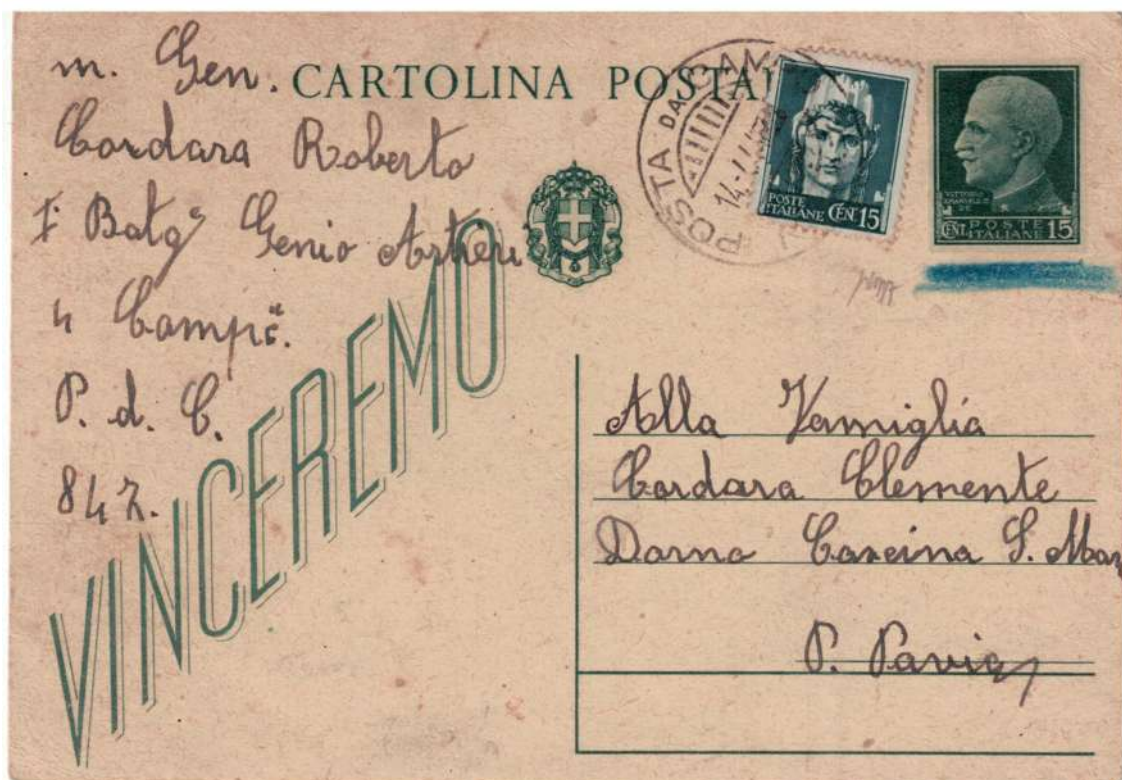 CARTOLINA POSTALE
m. Gen.
Cordara Roberto
I° Batg Genio Artieri
4 Compς.
P. d. C.
847.
VINCEREMO
POSTA DA CAM
14.7.4
POSTE
ITALIANE CENT 15
VITTORIO
EMANUELE III
RE
POSTE
CENT. ITALIANE 15
Alla Famiglia
Cordara Clemente
Dorno Cascina S. Mar
P. Pavia